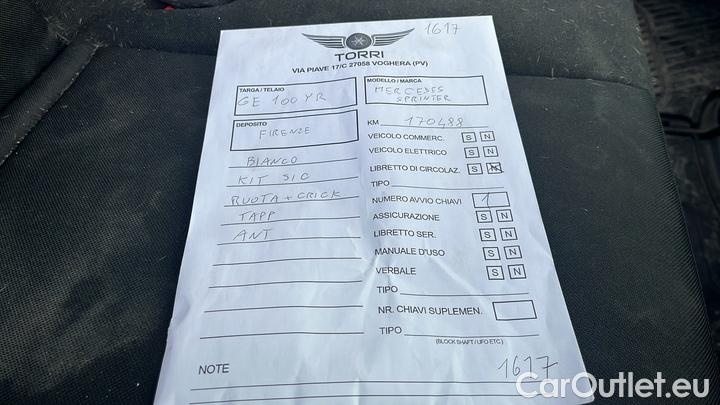 1617
TORRI
VIA PIAVE 17/C 27058 VOGHERA (PV)
TARGA / TELAIO
GE 100 YR
MODELLO / MARCA
MERCEDES
SPRINTER
DEPOSITO
FIRENZE
KM 170488
VEICOLO COMMERC. S N
BIANCO
VEICOLO ELETTRICO S N
KIT SIC
LIBRETTO DI CIRCOLAZ. S N
TIPO
RUOTA + CRICK
NUMERO AVVIO CHIAVI 1
TAPP
ASSICURAZIONE S N
ANT
LIBRETTO SER. S N
MANUALE D'USO S N
VERBALE S N
TIPO
NR. CHIAVI SUPLEMEN.
TIPO
(BLOCK SHAFT / UFO ETC.)
NOTE
1617
CarOutlet.eu